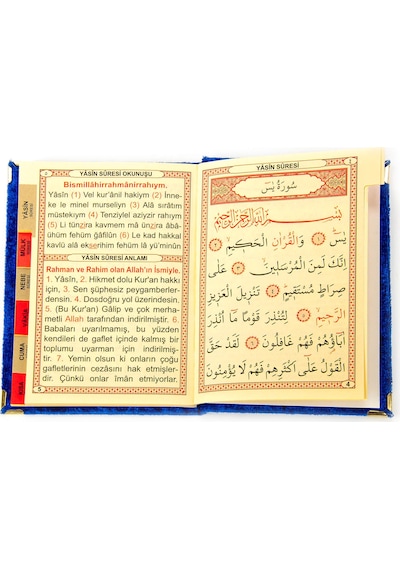 YÂSİN SÛRESİ OKUNUŞU
Bismillâhirrahmânirrahıym.
Yâsîn (1) Vel kur'ânil hakiym (2) İnne-
ke le minel murseliyn (3) Alâ sırâtım
müstekıym (4) Tenziylel aziyzir rahıym
(5) Li tünzira kavmem mâ ünzira âbâ-
ühüm fehüm ğâfilün (6) Le kad hakkal
kavlü alâ ekserihim fehüm lâ yü'minûn
YÂSİN SÛRESİ ANLAMI
Rahman ve Rahim olan Allah'ın İsmiyle.
1. Yâsîn, 2. Hikmet dolu Kur'an hakkı
için, 3. Sen şüphesiz peygamberler-
densin. 4. Dosdoğru yol üzerindesin.
5. (Bu Kur'an) Gâlip ve çok merha-
metli Allah tarafından indirilmiştir. 6.
Babaları uyarılmamış, bu yüzden
kendileri de gaflet içinde kalmış bir
toplumu uyarman için indirilmiş-
tir. 7. Yemin olsun ki onların çoğu
gafletlerinin cezasını hak etmişler-
dir. Çünkü onlar îman etmiyorlar.
5
YÂSİN
MÜLK
NEBE
CUMA
YÂSİN SÛRESİ
سُورَةُ يٰسٓ
بِسْمِ اللّٰهِ الرَّحْمٰنِ الرَّحِيمِ
يٰسٓ ﴿١﴾ وَالْقُرْاٰنِ الْحَكِيمِ ﴿٢﴾
اِنَّكَ لَمِنَ الْمُرْسَلِينَ ﴿٣﴾ عَلٰى
صِرَاطٍ مُسْتَقِيمٍ ﴿٤﴾ تَنْزِيلَ الْعَزِيزِ
الرَّحِيمِ ﴿٥﴾ لِتُنْذِرَ قَوْمًا مَٓا اُنْذِرَ
اٰبَٓاؤُهُمْ فَهُمْ غَافِلُونَ ﴿٦﴾ لَقَدْ حَقَّ
الْقَوْلُ عَلٰٓى اَكْثَرِهِمْ فَهُمْ لَا يُؤْمِنُونَ
4